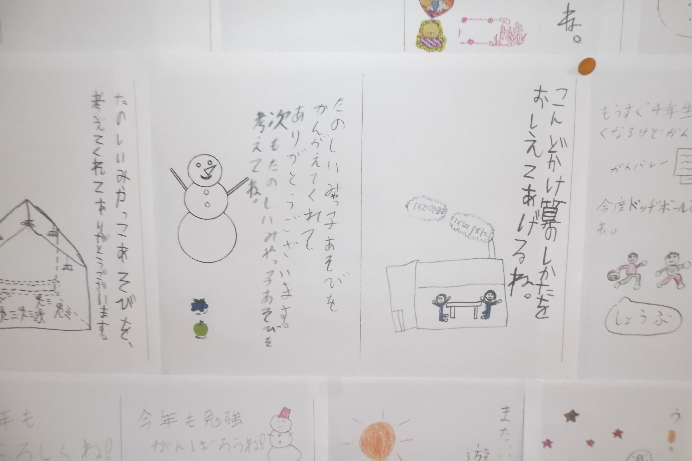 ね。
もうすぐ4年生
くなるけどがん
がんバレー
今度ドッヂボール
た。
しょうぶ
こんどかけ算のしかたを
おしえてあげるね。
たのしいみっ子あそびを
かんがえてくれて
ありがとうございます。
次もたのしいみやっ子あそびを
考えてね。
たのしいみやっこあそびを、
考えてくれてありがとうございます。
また、
遊
今年も勉強
がんばろうね!
年も
ろしくね!